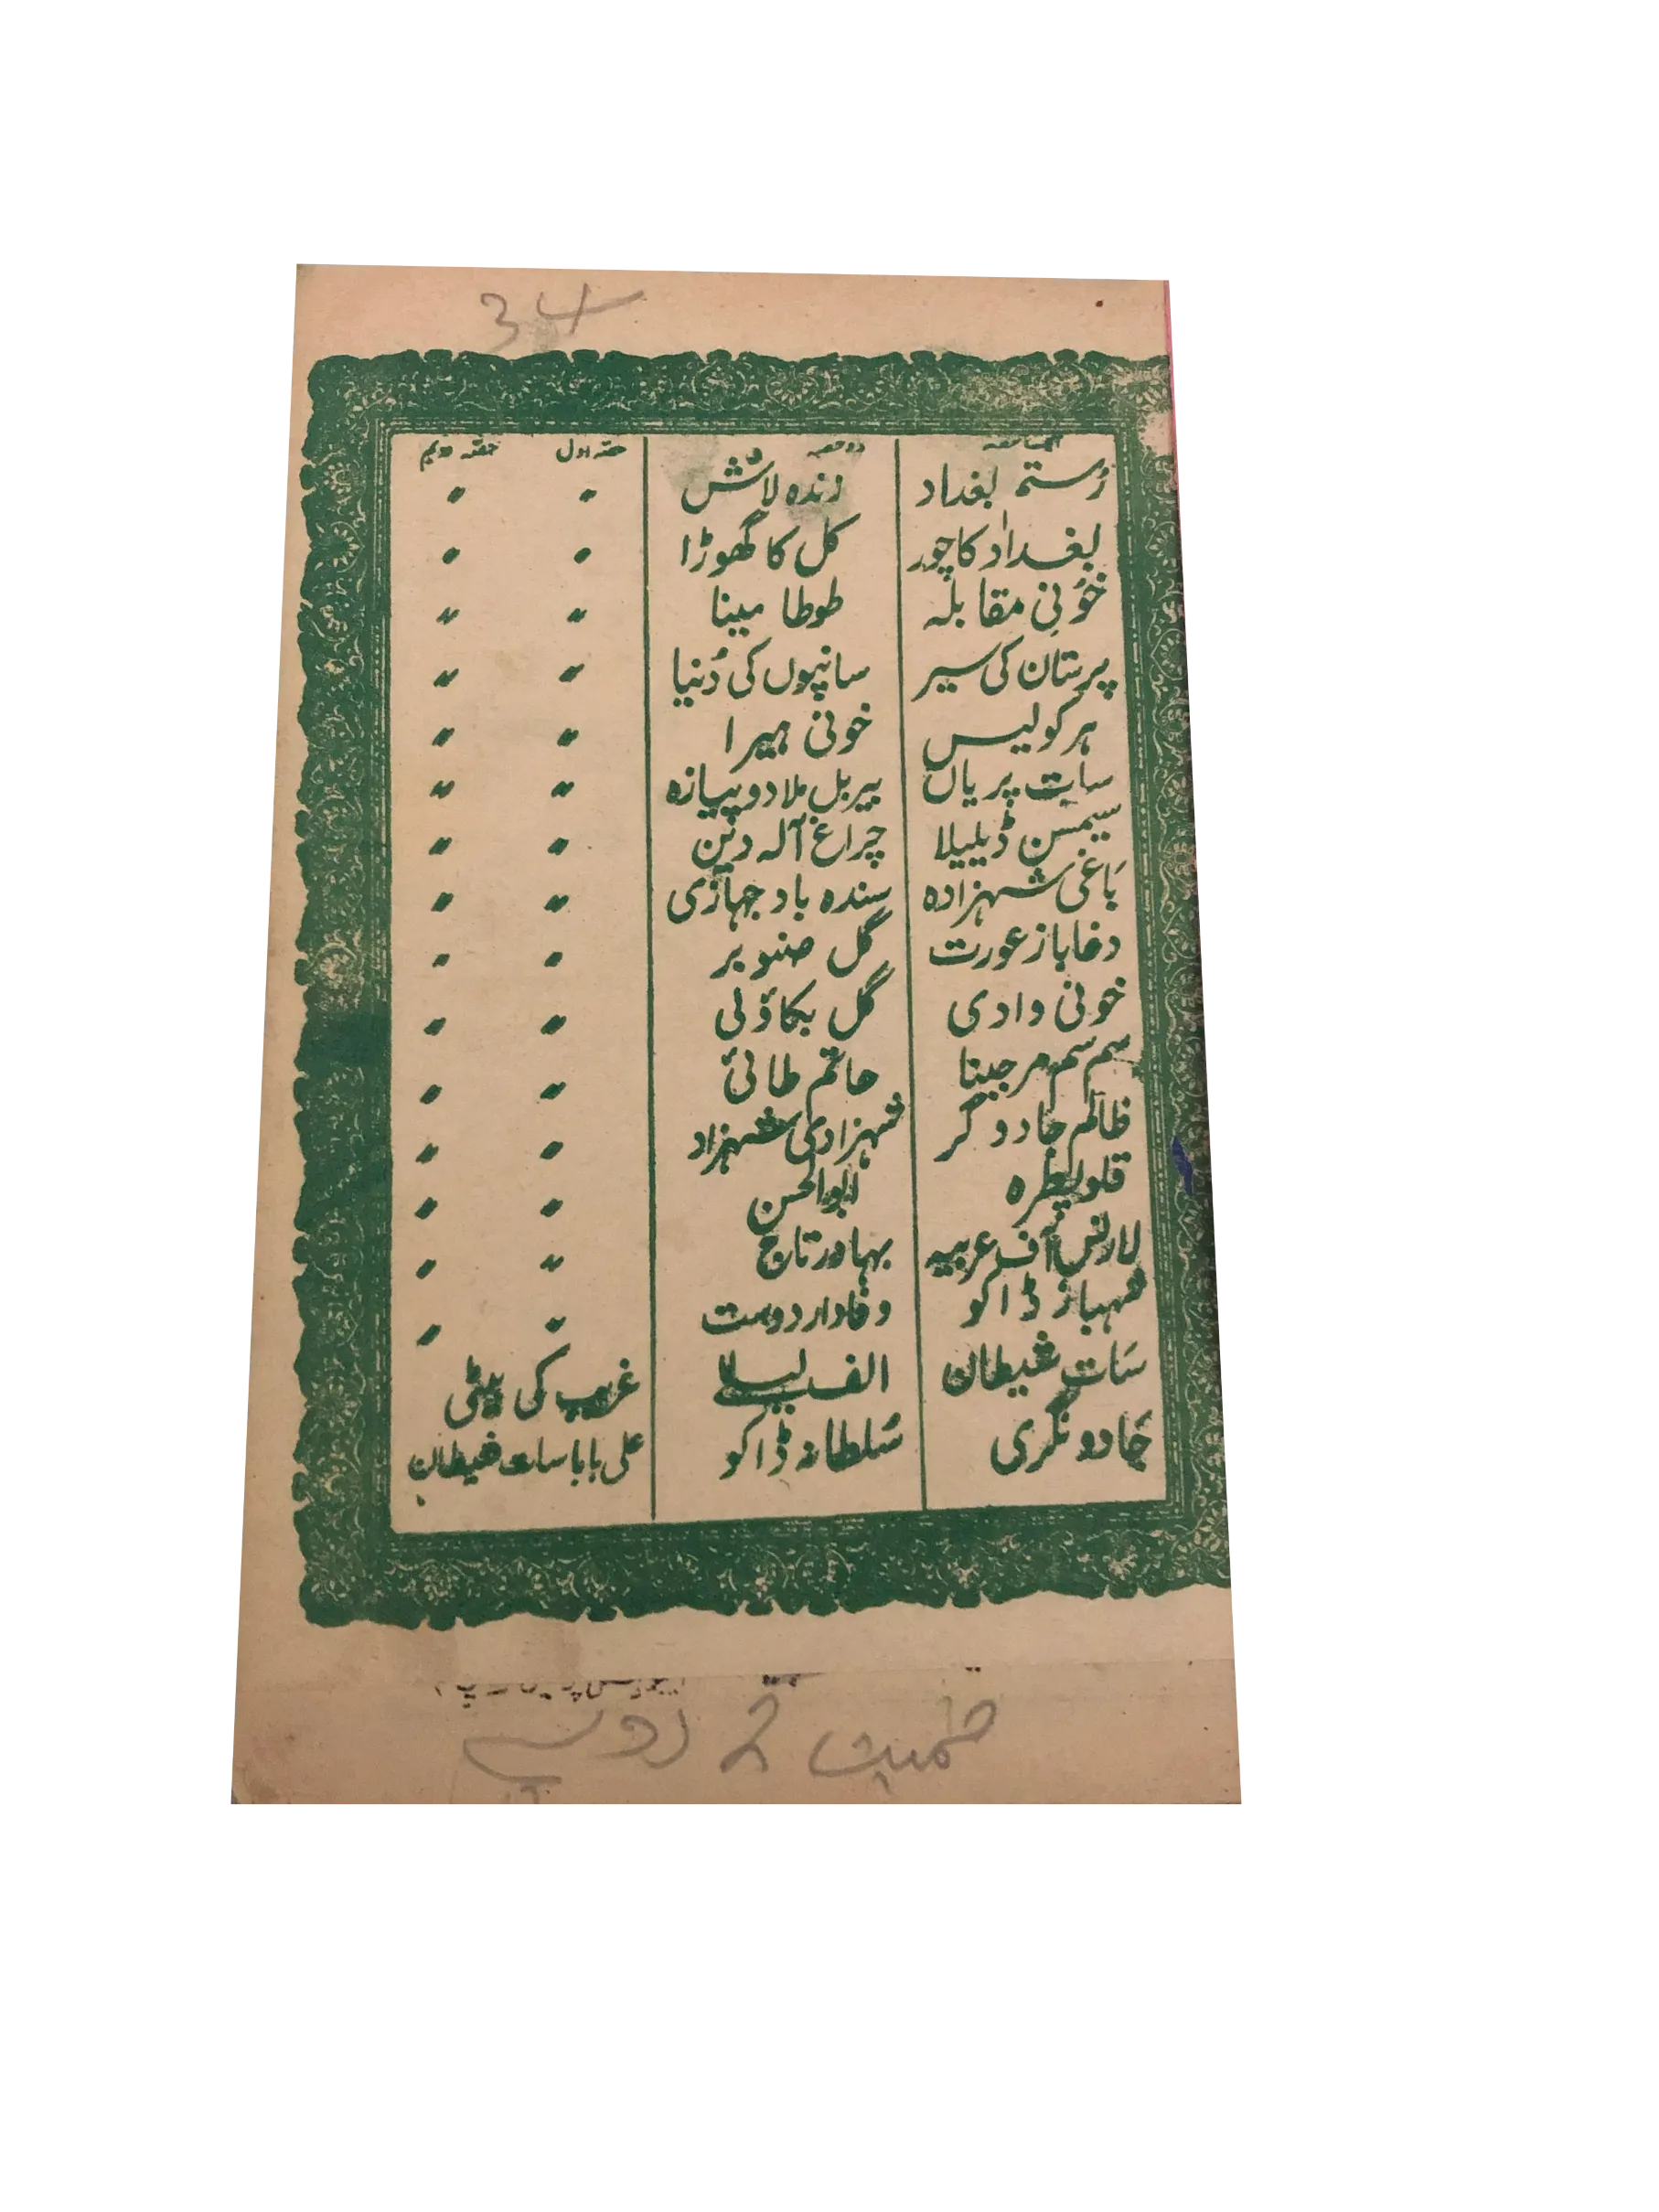 34
دو حصہ حصہ اول حصہ دوئم
رُستم بغداد زندہ لاش " "
بغداد کا چور کل کا گھوڑا " "
خُونی مقابلہ طوطا مینا " "
پرستان کی سیر سانپوں کی دُنیا " "
ہرکولیس خونی ہیرا " "
سات پریاں بیربل ملا دوپیازہ " "
سیمسن ڈیلیلا چراغ آلہ دین " "
باغی شہزادہ سندہ باد جہازی " "
دغاباز عورت گل صنوبر " "
خونی وادی گل بکاؤلی " "
سم سم مرجینا حاتم طائی " "
ظالم جادوگر شہزادی شہرزاد " "
قلوپطرہ ابوالحسن " "
لارنس آف عربیہ بہادر تاج " "
شہباز ڈاکو وفادار دوست " "
سات شیطان الف لیلے غریب کی بیٹی
جادو نگری سُلطانہ ڈاکو علی بابا سات شیطان
قمیت روپے